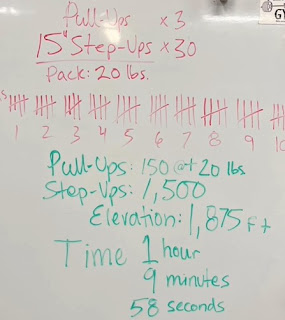 Pull-Ups x 3
15" Step-Ups x 30
Pack: 20 lbs.
1 2 3 4 5 6 7 8 9 10
Pull-Ups: 150 @ 20 lbs
Step-Ups: 1,500
Elevation: 1,875 Ft
Time 1 hour
9 minutes
58 seconds